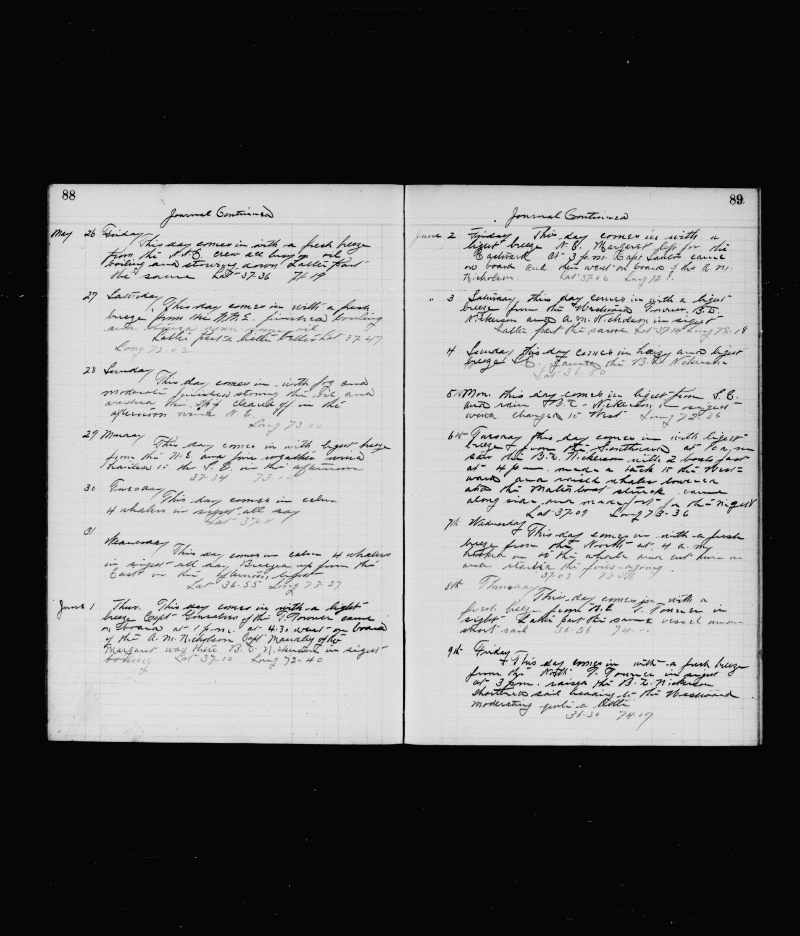 88
Journal Continued
May 26 Friday
This day comes in with a fresh breeze
from the N.E. crew all busy on oil
boiling and stowing down Latter part
the same Lat 37-36 71-19
27 Saturday
This day comes in with a fresh
breeze from the N.N.E. finished boiling
and down some oil
Latter part Lat 37-47
Long 72-02
28 Sunday
This day comes in with fog and
moderate finished stowing the oil and
washed the ship cleared off in the
afternoon wind N.E.
Long 73-00
29 Monday
This day comes in with light breeze
from the N.E. and fine weather wind
hauled to the S.E. in the afternoon
37-34 73
30 Tuesday
This day comes in calm
4 whalers in sight all day
Lat 37
31
Wednesday
This day comes in calm 4 whalers
in sight all day Breezed up from the
East in the afternoon
Lat 36-55 Long 73-27
June 1 Thur. This day comes in with a light
breeze Capt Gonsalves of the T. Towner came
on board at 1 p.m. at 4.30 went on board
of the A. M. Nicholson Capt of the
Margaret was there B. D. Nickerson in sight
Lat 37-10 Long 72-40
89
Journal Continued
June 2 Friday This day comes in with a
light breeze N.E. Margaret left for the
Eastward At 3 p.m. Capt came
on board and then went on board of the A. M.
Nicholson. Lat 37-06 Long 72
3 Saturday, this day comes in with a light
breeze from the Westward Towner, B.D.
Nickerson and A. M. Nicholson in sight
Latter part the same Lat 37-14 Long 72-18
4 Sunday this day comes in hazy and light
breeze S.E. the B.D. Nickerson
Lat 36-50
5th Mon. this day comes in light from S.E.
and rain B.D. Nickerson in sight
wind changed to West Long 72-36
6th Tuesday this day comes in with light
breeze from the Southward at 10 a,m
saw the B.D. Nickerson with 2 boats fast
at 4 p.m. made a tack to the West-
ward and raised whales lowered
and the Mates boat struck came
along side and made fast for the night
Lat 37-09 Long 73-36
7th Wednesday
This day comes in with a fresh
breeze from the North at 4 a. m.
on to the whale and cut him in
and started the fires
37-03
8th Thursday
This day comes in with a
fresh breeze from N.E. T. Towner in
sight Latter part the same vessel under
short sail 36-56 74
9th Friday
This day comes in with a fresh breeze
from the North T. Towner in sight
at 3 p.m. raised the B.D. Nickerson
shortened sail heading to the Westward
moderating quite a little
36-30 74-07